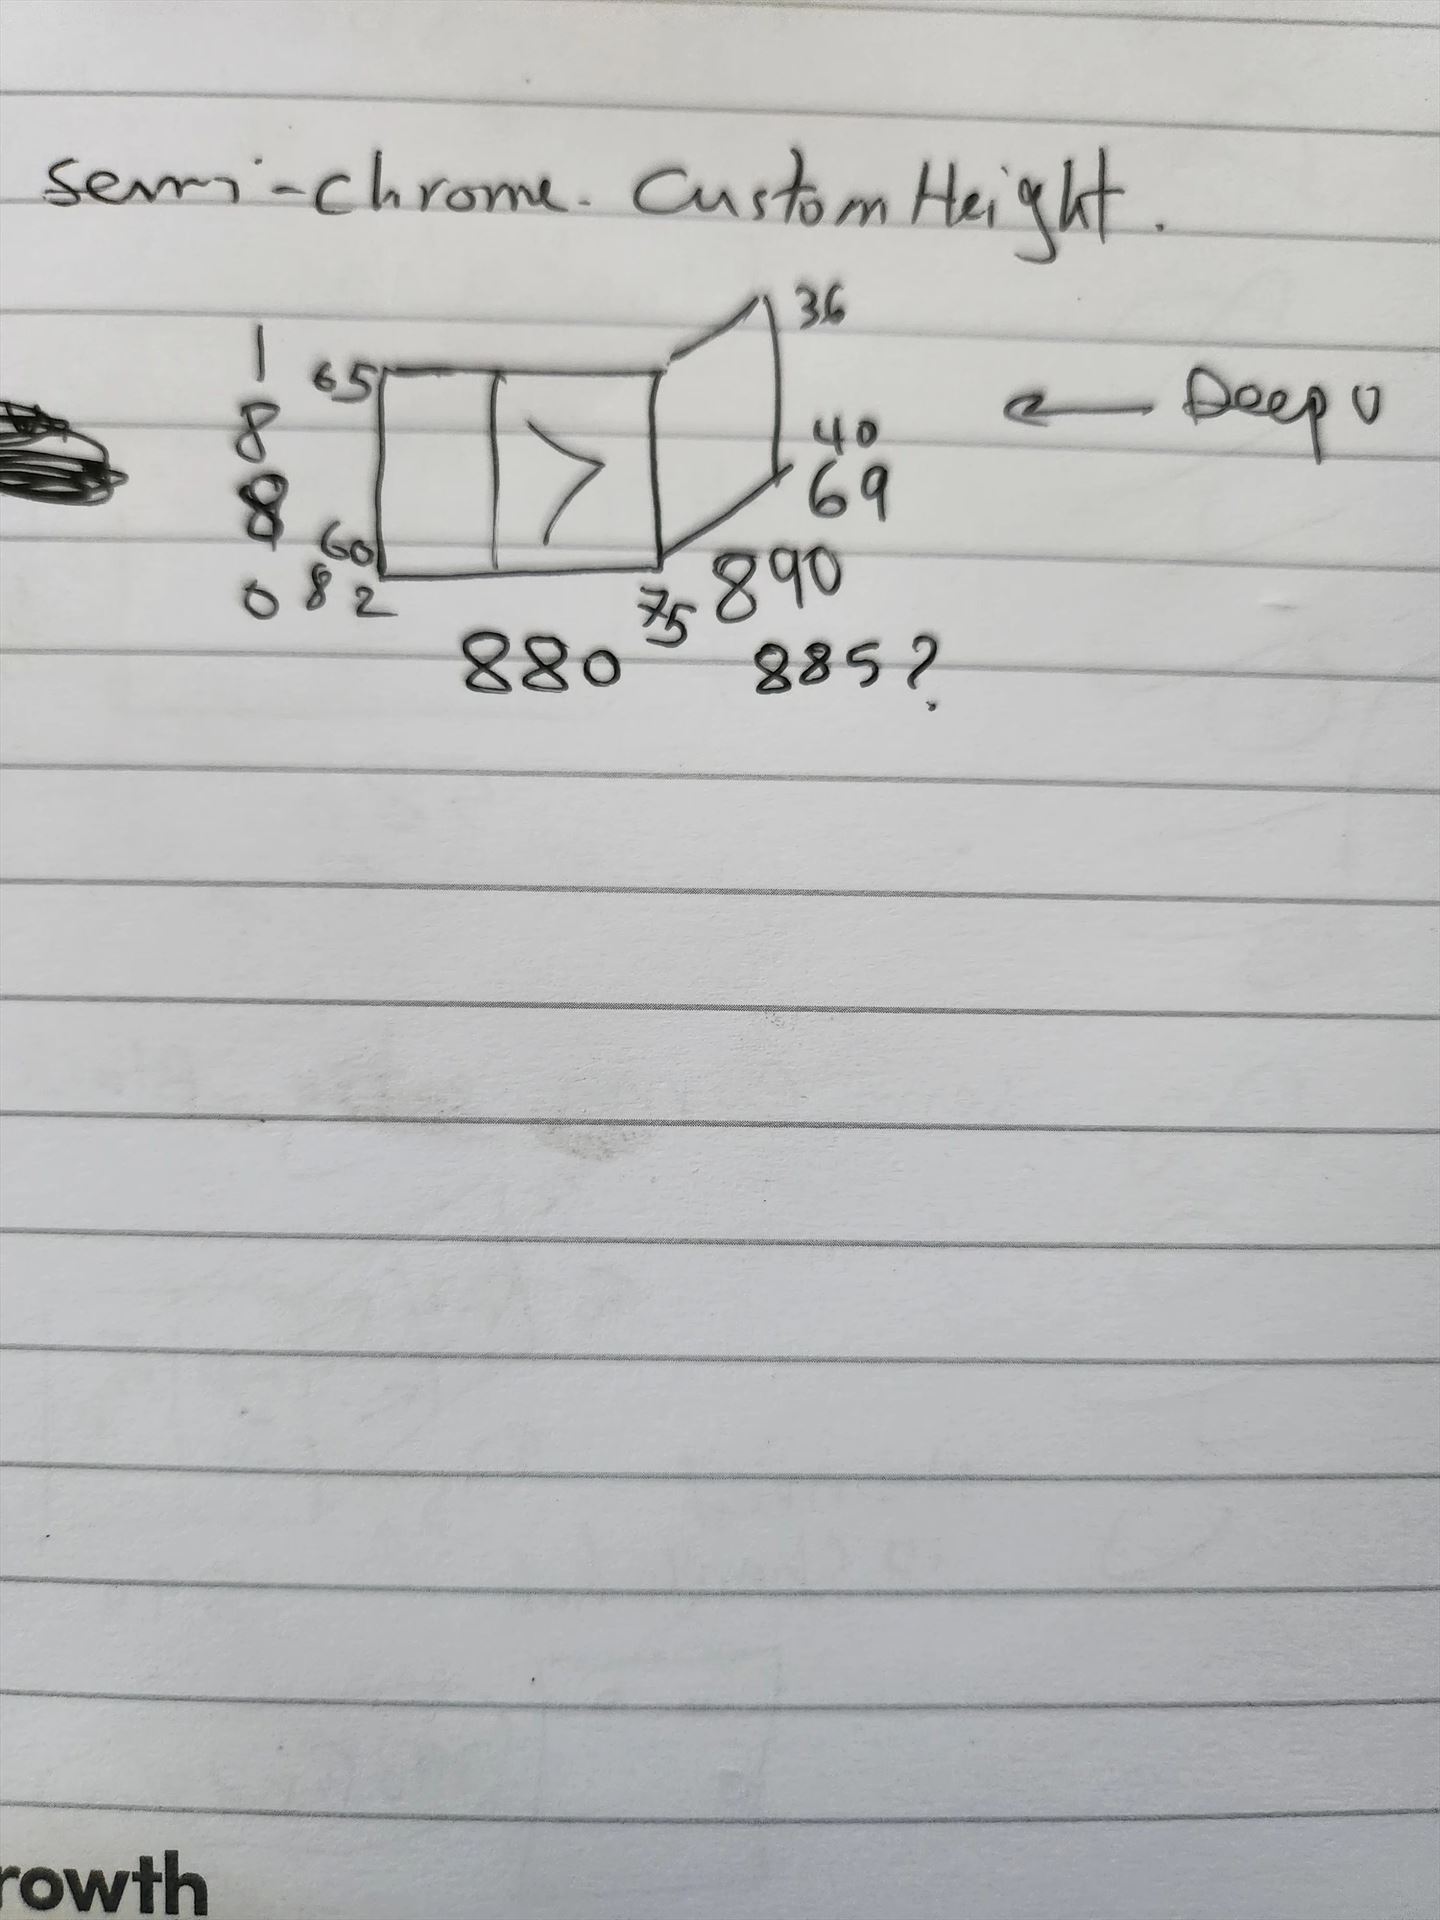 Semi-chrome. Custom Height.
36
1880
65
← Deep U
40
69
60
82
75
890
880
885?
rowth